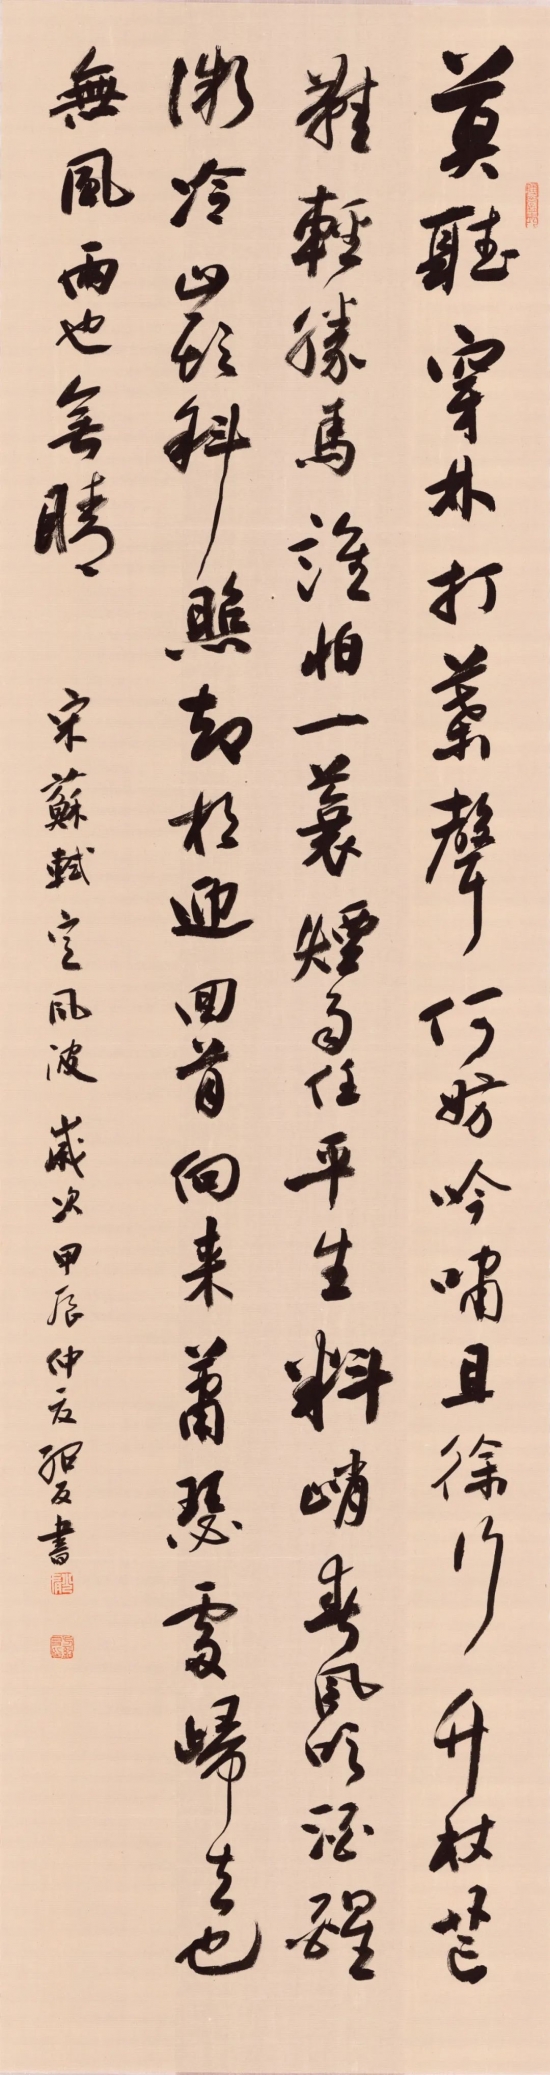 莫聽穿林打葉聲何妨吟嘯且徐行竹杖芒
鞋輕勝馬誰怕一蓑煙雨任平生料峭春風吹酒醒
微冷山頭斜照却相迎回首向来蕭瑟處歸去也
無風雨也無晴
宋蘇軾定風波歲次甲辰仲夏 書